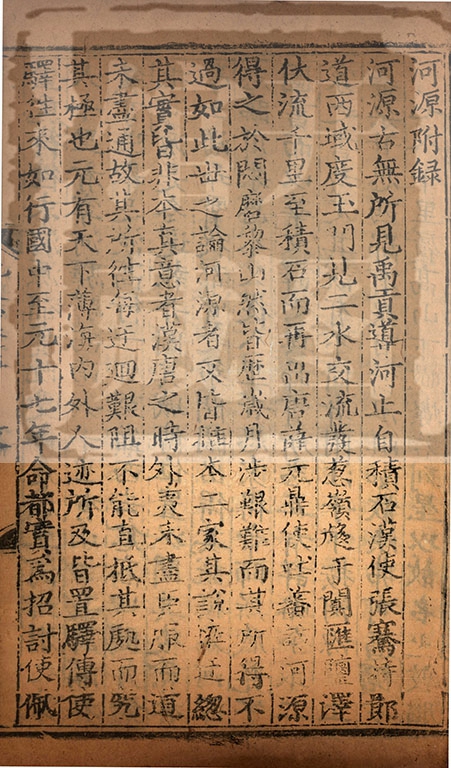 河源附録
河源古無所見禹貢導河止自積石漢使張騫持節
道西域度玉門見二水交流發葱嶺趨于闐匯鹽澤
伏流千里至積石而再出唐薛元鼎使吐蕃訪河源
得之於悶磨黎山然皆歷歲月涉艱難而其所得不
過如此世之論河源者又皆推本二家其說迂迂總
其實皆非本真意者漢唐之時外夷未盡臣服而道
未盡通故其所往每迂迴艱阻不能直抵其處而究
其極也元有天下薄海内外人迹所及皆置驛傳使
驛往來如行國中至元十七年命都實爲招討使佩